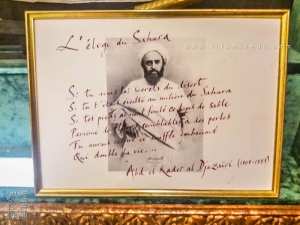 L'éloge du Sahara
Si tu avais les secrets du désert
Si tu t'étais éveillé au milieu du Sahara
Si tes pieds avaient foulé ce tapis de sable
Parsemé de fleurs semblables à des perles
Tu aurais
souffle embaumé
Que double la vie...
Abd el Kader al Djazaïri (1808-1883)